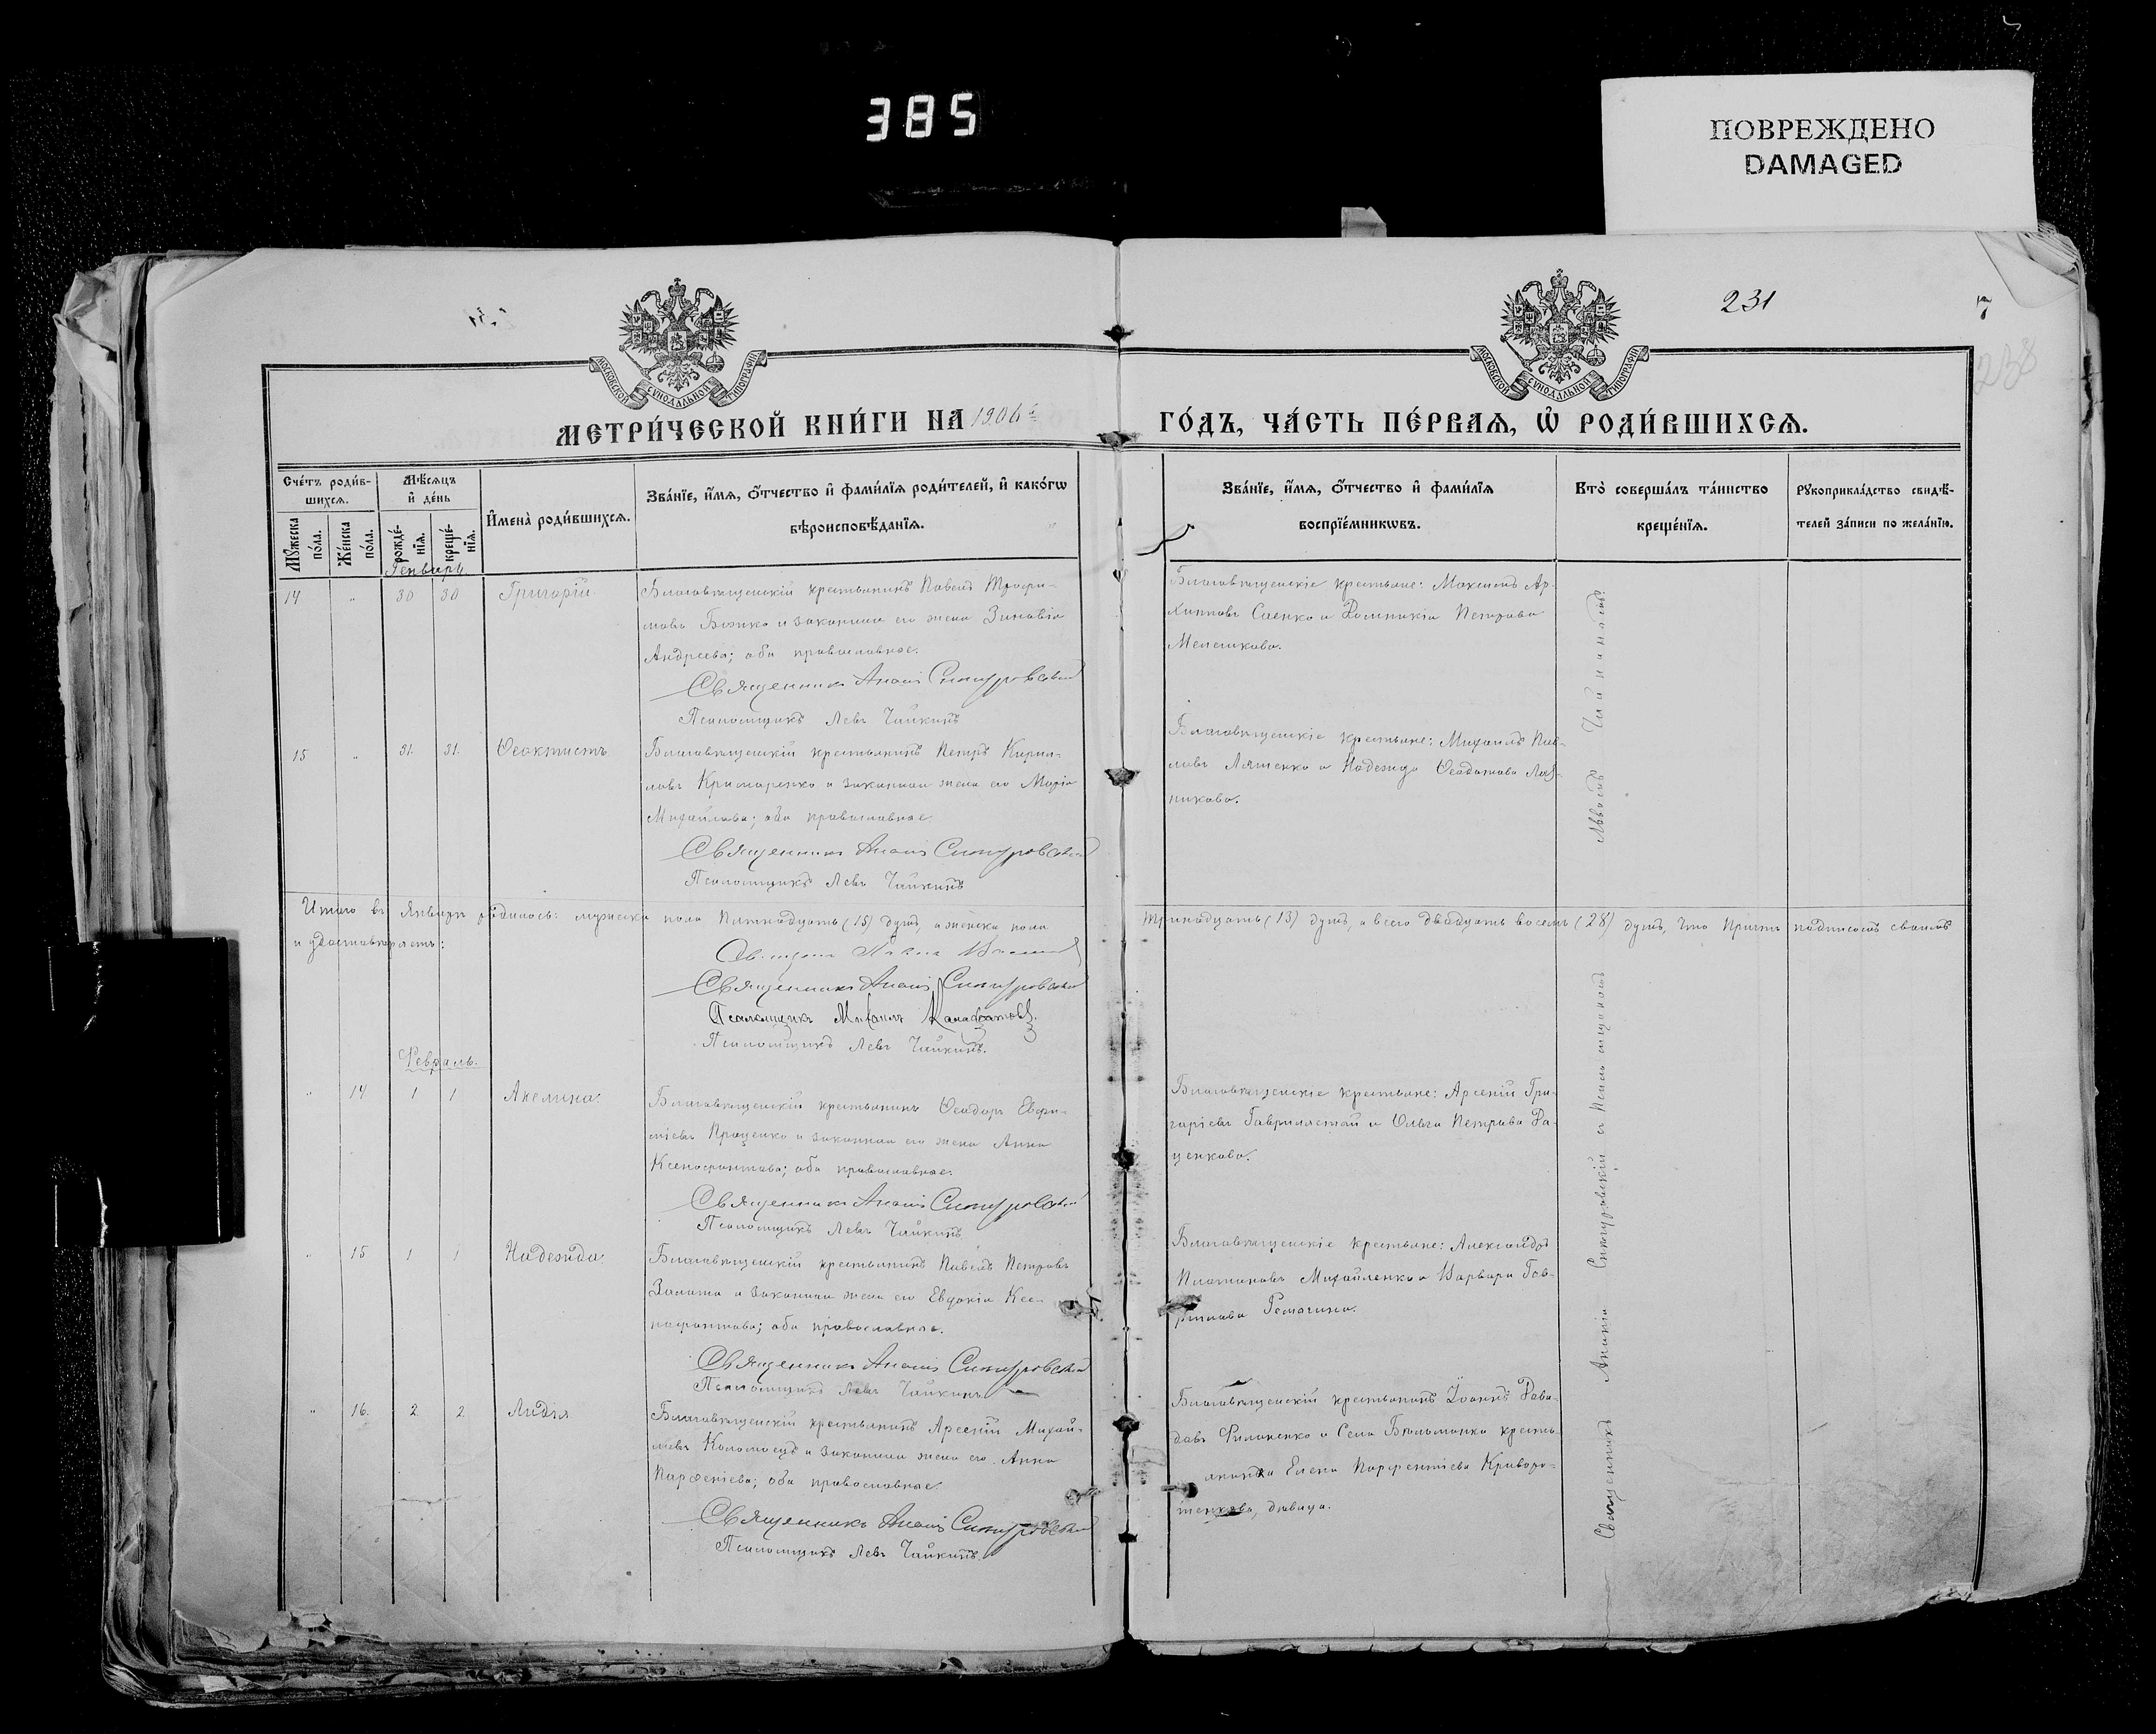 385
ПОВРЕЖДЕНО
DAMAGED
231
7
238
МОСКОВСКОЙ СѴНОДАЛЬНОЙ ТИПОГРАФІИ
МОСКОВСКОЙ СѴНОДАЛЬНОЙ ТИПОГРАФІИ
МЕТРИ́ЧЕСКОЙ КНИ́ГИ НА 1906й ГО́ДЪ, ЧА́СТЬ ПЕ́РВАѦ, Ѡ҆ РОДИ́ВШИХСѦ.
Сче́тъ роди́в-
шихсѧ.
Мꙋжеска по́ла.
Же́нска по́ла.
Мѣ́сѧцъ
и҆ де́нь
рожде́-
нїѧ.
креще́-
нїѧ.
И҆мена̀ роди́вшихсѧ.
Зва́нїе, и҆́мѧ, ѻ҆́тчество и҆ фами́лїѧ роди́телей, и҆ како́гѡ
вѣроисповѣ́данїѧ.
Зва́нїе, и҆́мѧ, ѻ҆́тчество и҆ фами́лїѧ
воспрїе́мникѡвъ.
Кто̀ соверша́лъ та́инство
креще́нїѧ.
Рꙋкоприкла́дство свидѣ́-
телей за́писи по жела́нїю.
Генварь
14 " 30 30 Григорій
Благовѣщенскій крестьянинъ Павелъ Трофи-
мовъ Божко и законная его жена Зиновія
Андреева; оба православные.
Священникъ Анані
Псаломщикъ Левъ Чайкинъ
Благовѣщенскіе крестьяне: Максимъ Ар-
хиповъ Саенко и Домникія Петрова
Мелешкова.
15 " 31. 31. Ѳеоктистъ
Благовѣщенскій крестьянинъ Петръ Кирил-
ловъ Кримаренко и законная жена его Марія
Михайлова; оба православные.
Священникъ Анані
Псаломщикъ Левъ Чайкинъ
Благовѣщенскіе крестьяне: Михаилъ Пав-
ловъ Ляшенко и Надежда Ѳеодотова
никова.
Итого въ Январѣ родилось: мужска пола Пятнадцать (15) душъ, а женска пола тринадцать (13) душъ, а всего двадцать восемь (28) душъ, что Причтъ подписомъ своимъ
и удостовѣряетъ:
Священникъ Анані
Псаломщикъ Михаилъ
Псаломщикъ Левъ Чайкинъ.
Февраль.
" 14 1 1 Акелина.
Благовѣщенскій крестьянинъ Ѳеодоръ Евфи-
міевъ Проценко и законная его жена Анна
Ксенофонтова; оба православные.
Священникъ Анані
Псаломщикъ Левъ Чайкинъ
Благовѣщенскіе крестьяне: Арсеній Гри-
горіевъ и Ольга Петрова Да-
ценкова.
" 15 1 1 Надежда.
Благовѣщенскій крестьянинъ Павелъ Петровъ
и законная жена его Евдокія Ксе-
нофонтова; оба православные.
Священникъ Анані
Псаломщикъ Левъ Чайкинъ
Благовѣщенскіе крестьяне: Александръ
Платоновъ Михайленко и Варвара Гав-
рилова
" 16. 2. 2. Лидія
Благовѣщенскій крестьянинъ Арсеній Михай-
ловъ Коломоецъ и законная жена его Анна
Парфеніева; оба православные.
Священникъ Анані
Псаломщикъ Левъ Чайкинъ.
Благовѣщенскій крестьянинъ Іоаннъ Дави-
довъ Филоненко и Села крестьянка Елена Парфентіева
дѣвица.
Священникъ Ананія съ Псаломщикомъ Львомъ Чайкинымъ.